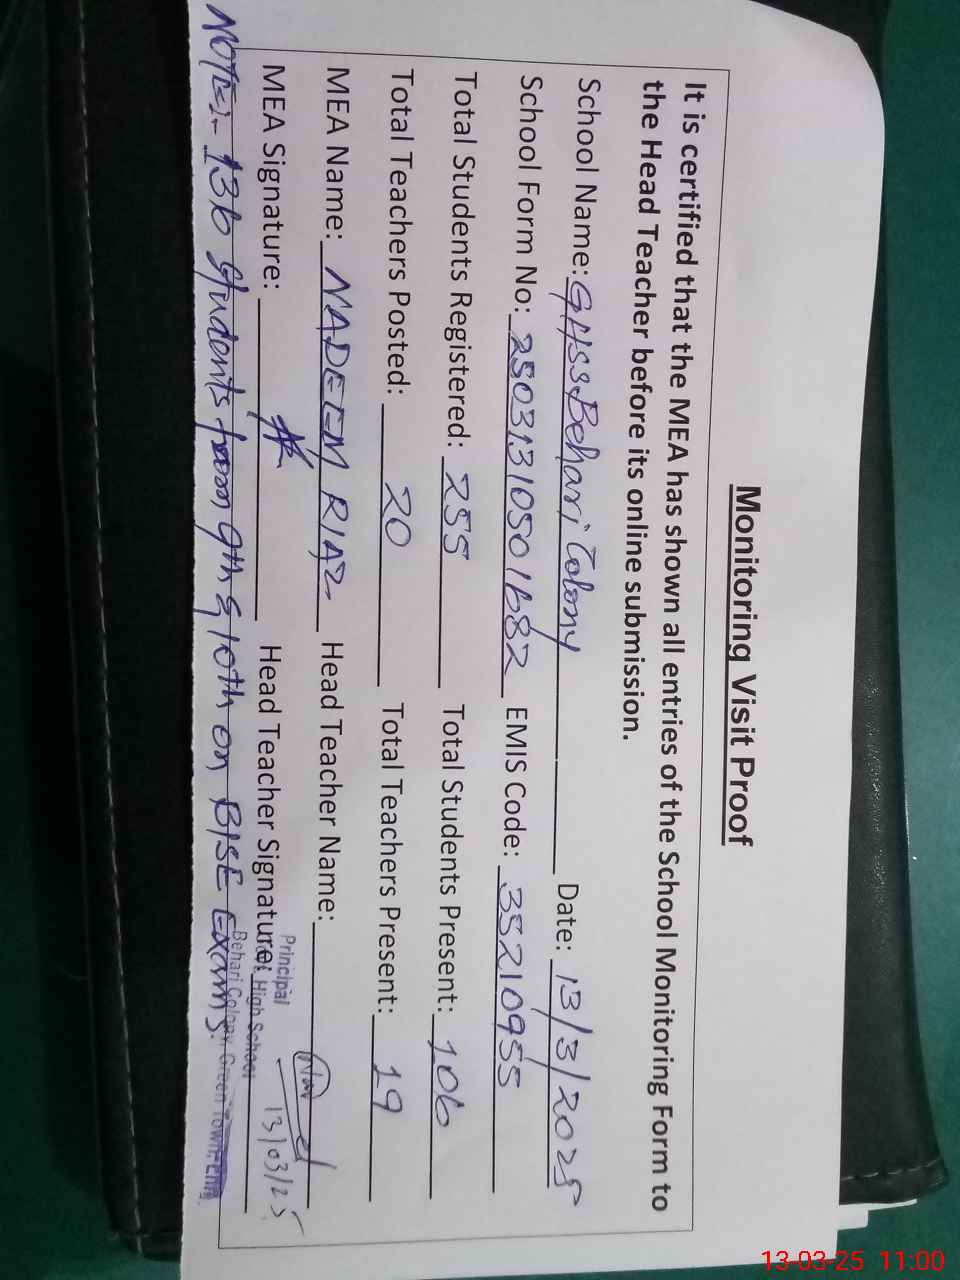 Monitoring Visit Proof
It is certified that the MEA has shown all entries of the School Monitoring Form to
the Head Teacher before its online submission.
School Name: GHSS Behari Colony Date: 13/3/2025
School Form No: 25031310501682 EMIS Code: 35210955
Total Students Registered: 255 Total Students Present: 106
Total Teachers Posted: 20 Total Teachers Present: 19
MEA Name: NADEEM RIAZ Head Teacher Name:
MEA Signature: Head Teacher Signature:
13/03/25
Principal
High School
Behari Colony, Green Town,
Note:- 136 students from 9th & 10th on BISE Exams.
13-03-25 11:00